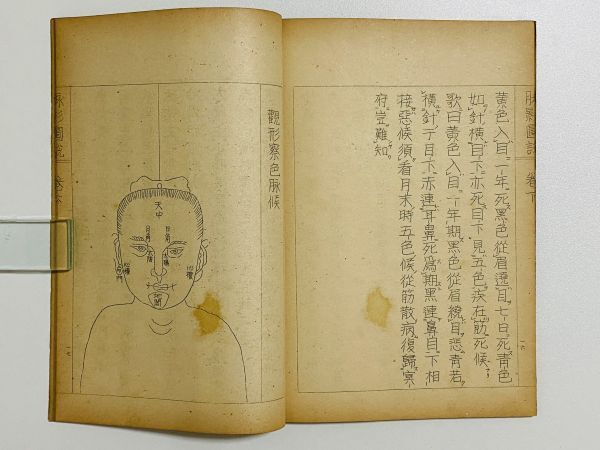 脉影圖説 卷下
黃色入目一年死黑色從眉遶耳七日死靑色
如針橫目下亦死目下見五色疾在筋死候
歌曰黃色入目一年期黑色從眉繞耳悲靑若
橫針于目下赤連耳鼻死爲期黑連鼻目下相
接惡候須看月末時五色候從筋散病復歸冥
府豈難知
觀形察色脉候
天中
日角
月角
太陽
太陰
地閣